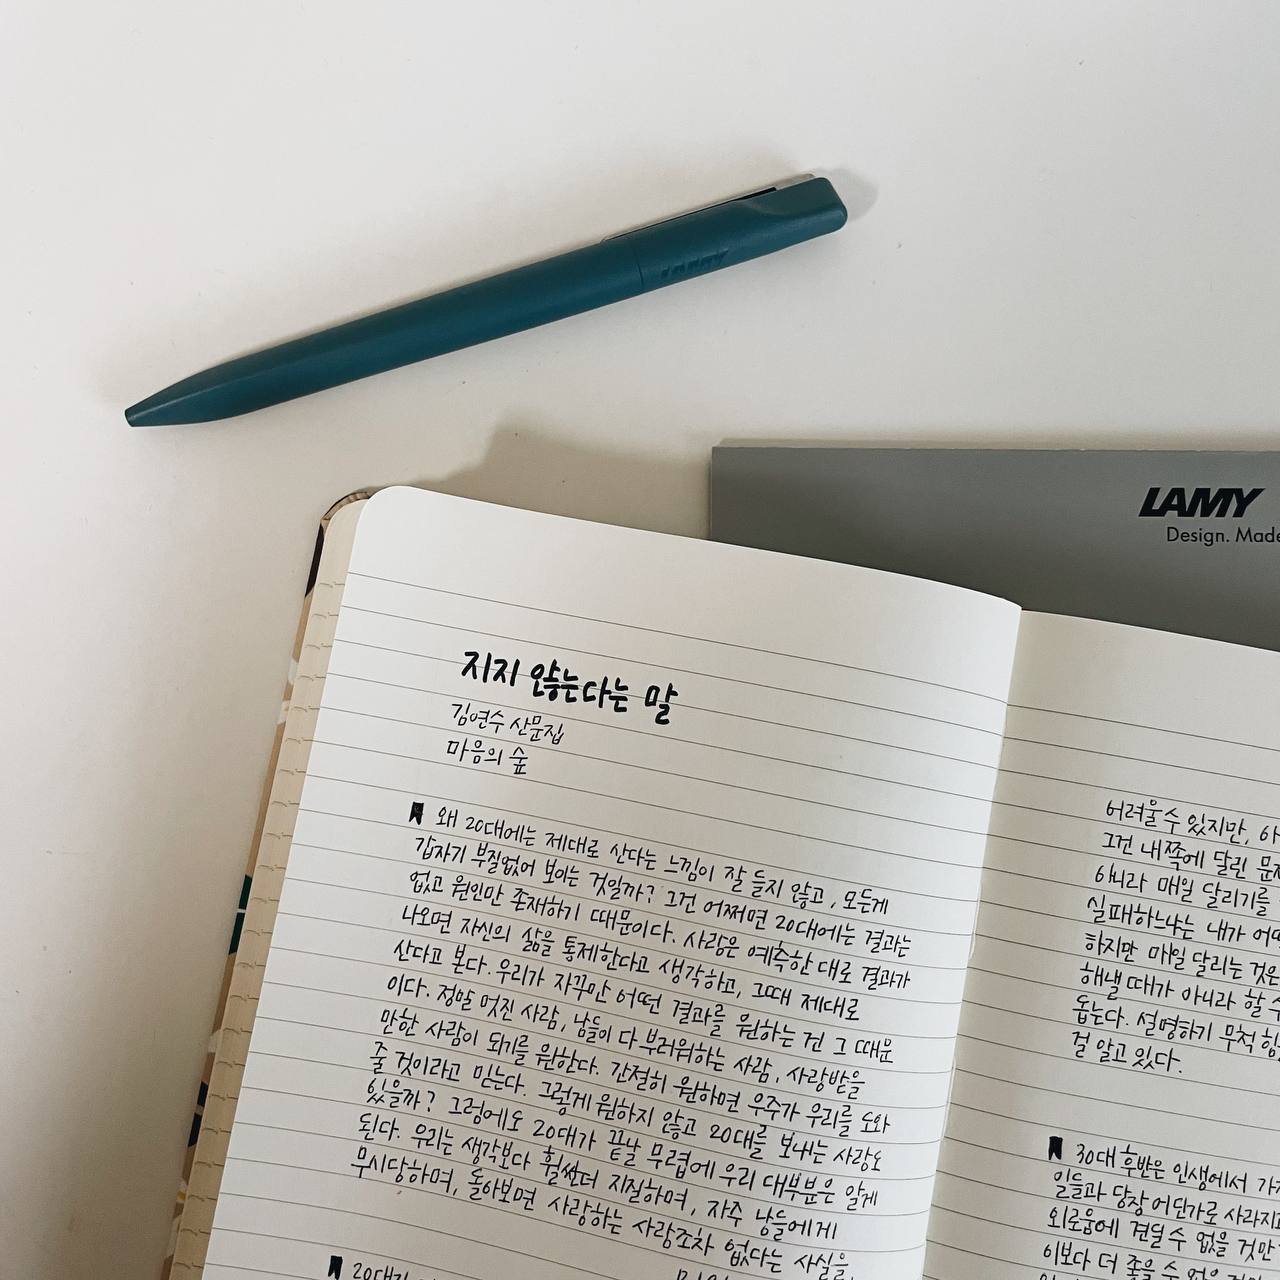 LAMY
LAMY
Design. Made
지지 않는다는 말
김연수 산문집
마음의 숲
왜 20대에는 제대로 산다는 느낌이 잘 들지 않고, 모든게
갑자기 부질없어 보이는 것일까? 그건 어쩌면 20대에는 결과는
없고 원인만 존재하기 때문이다. 사람은 예측한 대로 결과가
나오면 자신의 삶을 통제한다고 생각하고, 그때 제대로
산다고 본다. 우리가 자꾸만 어떤 결과를 원하는 건 그 때문
이다. 정말 멋진 사람, 남들이 다 부러워하는 사람, 사랑받을
만한 사람이 되기를 원한다. 간절히 원하면 우주가 우리를 도와
줄 것이라고 믿는다. 그렇게 원하지 않고 20대를 보내는 사람도
있을까? 그럼에도 20대가 끝날 무렵에 우리 대부분은 알게
된다. 우리는 생각보다 훨씬 더 지질하며, 자주 남들에게
무시당하며, 돌아보면 사랑하는 사람조차 없다는 사실을
20대가
어려울 수 있지만,
그건 내쪽에 달린
아니라 매일 달리기를
실패하느냐는 내가
하지만 매일 달리는 것은
해낼 때가 아니라 할
돕는다. 설명하기 무척
걸 알고 있다.
30대 후반은 인생에서
일들과 당장 어딘가로
외로움에 견딜 수 없을 것만
이보다 더 좋을 수